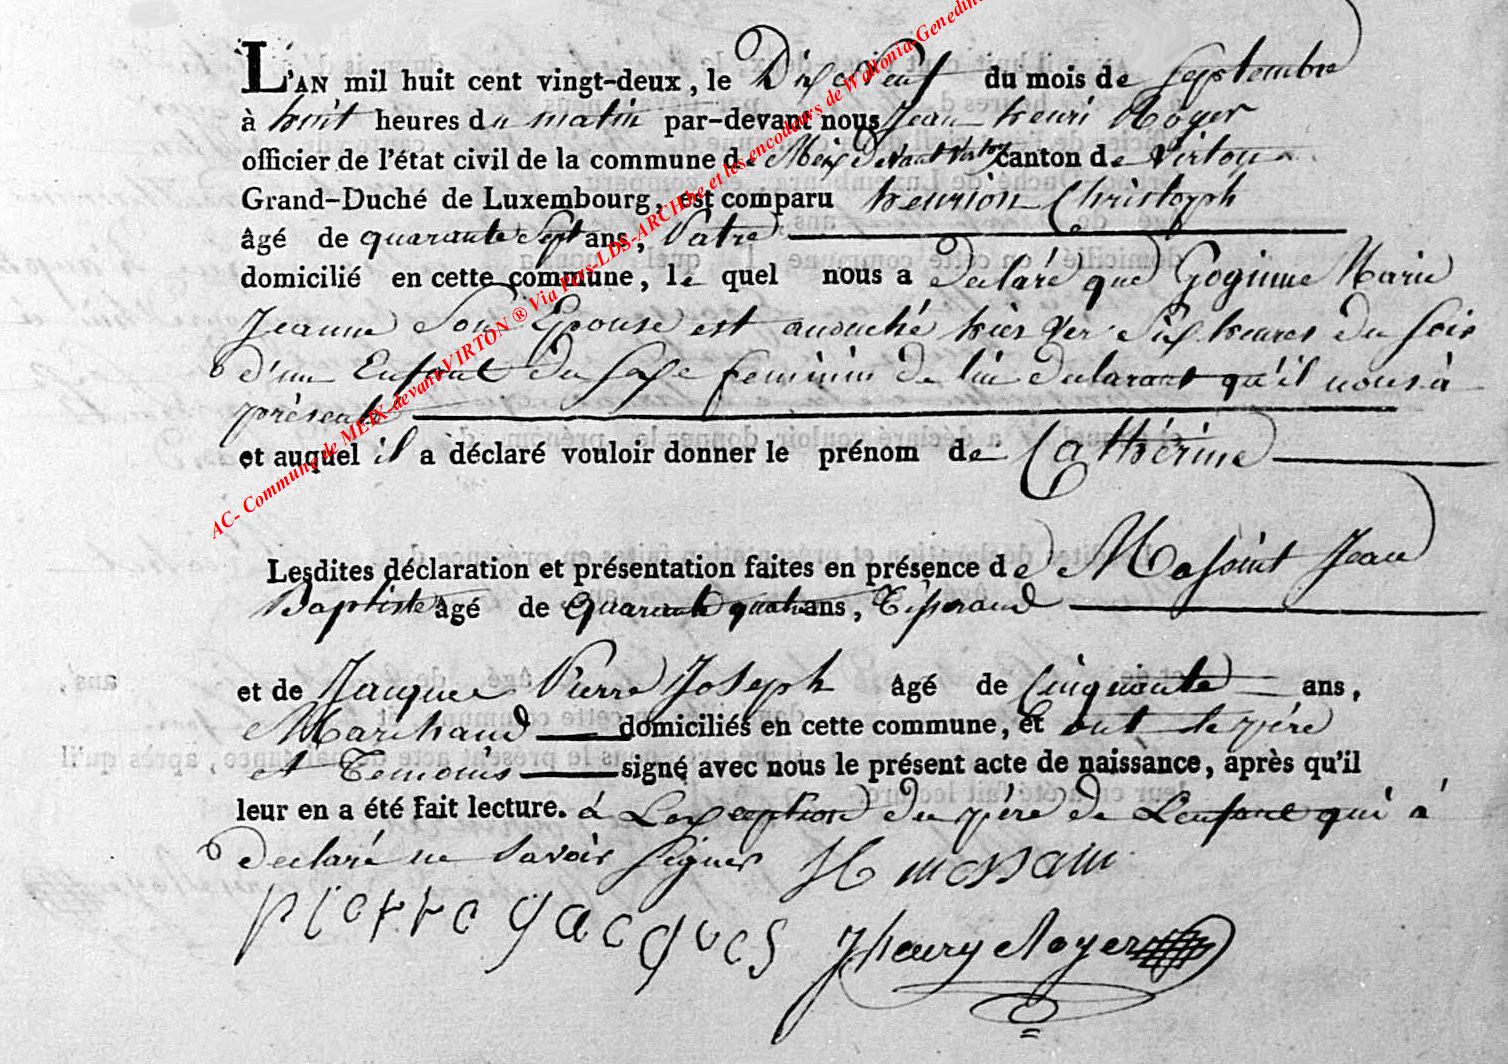 L'AN mil huit cent vingt-deux, le Dix Neuf du mois de Septembre
à huit heures du matin par-devant nous Jean henri Noyer
officier de l'état civil de la commune de Meix Devant Virton canton de Virton
Grand-Duché de Luxembourg, est comparu henrion Christoph
âgé de quarante Sept ans, Patre
domicilié en cette commune, le quel nous a Declaré que Goginne Marie
Jeanne Son Epouse est accouché hièr Ver Six heures Du Soir
D'un Enfant Du Sexe feminin De lui declarant qu'il nous à
présenté
et auquel il a déclaré vouloir donner le prénom de Cathérine
Lesdites déclaration et présentation faites en présence de Jean
Baptiste âgé de Quarante quatre ans, Tisserand
et de Jacques Pierre Joseph âgé de Cinquante ans,
Marchand domiciliés en cette commune, et ont le père
et Temoins signé avec nous le présent acte de naissance, après qu'il
leur en a été fait lecture. á Lexception du père de Lenfant qui à
declaré ne Savoir Signer H
pierre yacques JHenry Noyer
AC- Commune de MEIX-devant-VIRTON ® Via Pers-LDS-ARCHbe et les encodeurs de Wallonia-Genedinfo